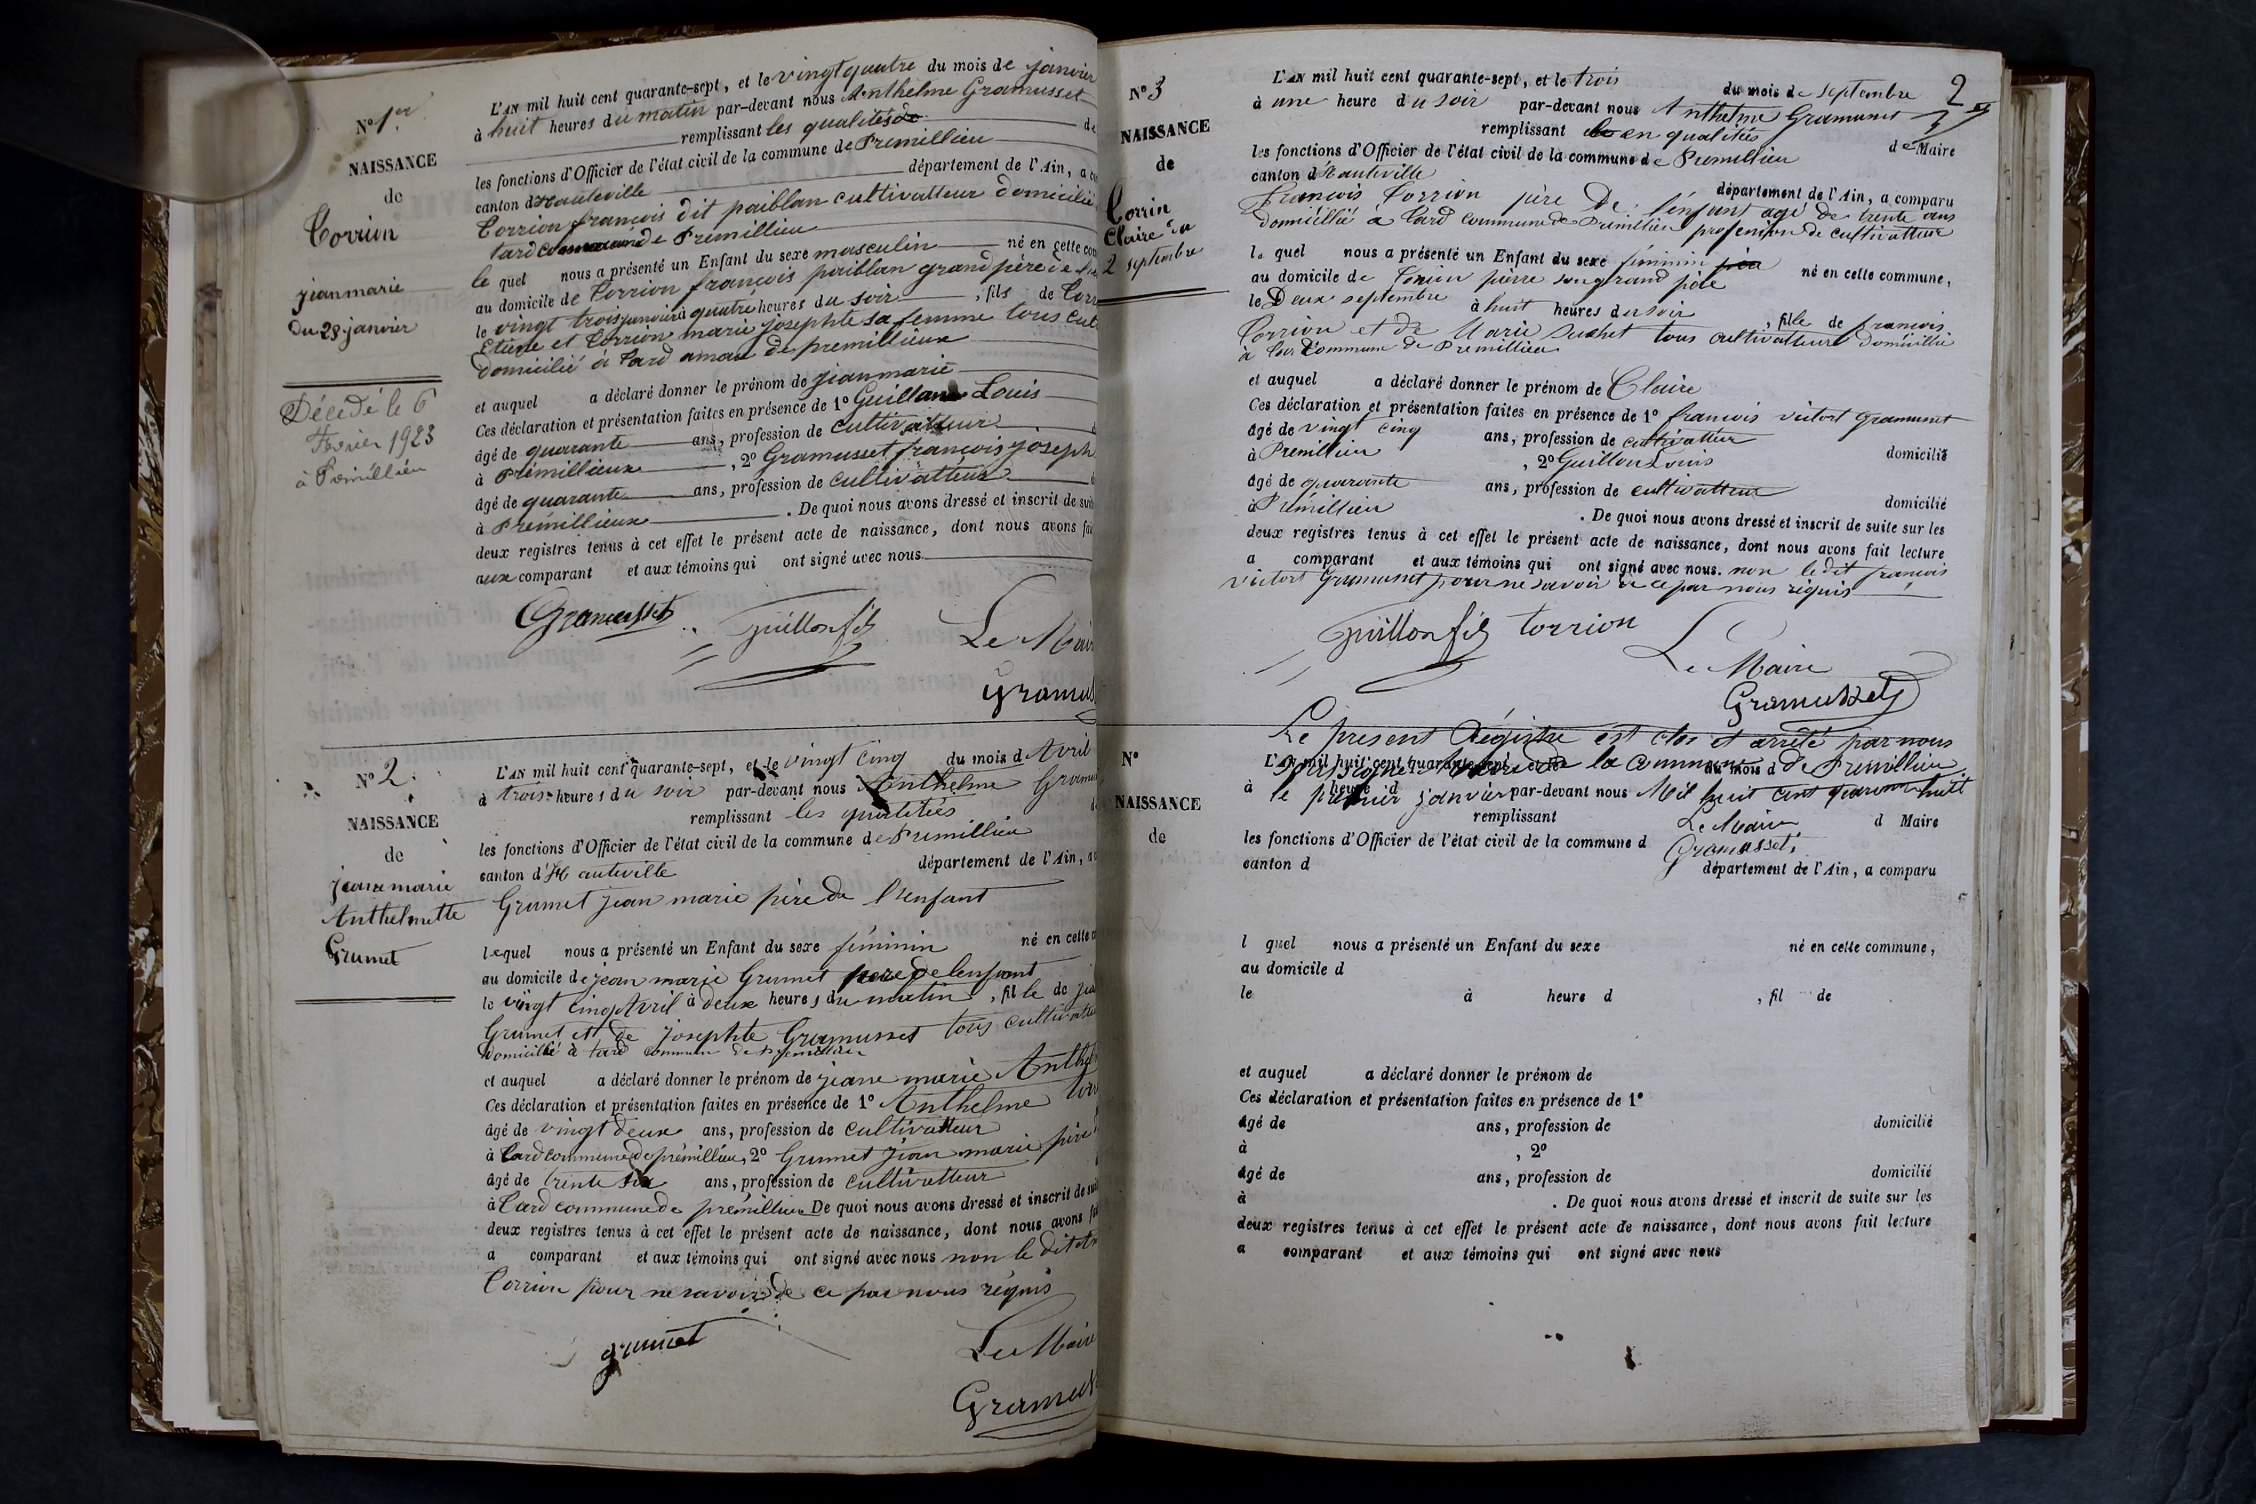 N° 1er
NAISSANCE
de
Corrion
jean marie
du 23 janvier
Décédé le 6
Février 1923
à Prémillieu
L'AN mil huit cent quarante-sept, et le vingt quatre du mois de janvier
à huit heures du matin par-devant nous Anthelme Gramusset
remplissant les qualités de
les fonctions d'Officier de l'état civil de la commune de Premillieu
canton d'Hauteville département de l'Ain, a
Corrion françois dit paiblan cultivatteur domicilié
tard commune de Premillieu
le quel nous a présenté un Enfant du sexe masculin né en cette
au domicile de Corrion françois paiblan grand père de
le vingt trois janvier à quatre heures du soir, fils de
Etiene et Corrion marie josephte sa femme tous
domicilié à tard de premillieux
et auquel a déclaré donner le prénom de jean marie
Ces déclaration et présentation faites en présence de 1° Guillon Louis
âgé de quarante ans, profession de cultivatteur
à Prémillieux, 2° Gramusset françois joseph
âgé de quarante ans, profession de cultivatteur
à Prémillieux. De quoi nous avons dressé et inscrit de
deux registres tenus à cet effet le présent acte de naissance, dont nous avons
aux comparant et aux témoins qui ont signé avec nous
Gramusset Guillon fils Le
N° 2.
NAISSANCE
de
jeane marie
Anthelmette
Grumet
L'AN mil huit cent quarante-sept, et le vingt cinq du mois d Avril
à trois heures du soir par-devant nous Anthelme
remplissant les qualitiés
les fonctions d'Officier de l'état civil de la commune de Premillieu
canton d'Hauteville département de l'Ain,
Grumet jean marie père de l'enfant
lequel nous a présenté un Enfant du sexe féminin né en cette
au domicile de jean marie Grumet père de lenfant
le vingt cinq Avril à deux heures du matin, fille de
Grumet et de josephte Gramusset tous
domicilié à tard commune de Premillieu
et auquel a déclaré donner le prénom de jeane marie
Ces déclaration et présentation faites en présence de 1° Anthelme
âgé de vingt deux ans, profession de cultivatteur
à tard commune de prémillieu, 2° Grumet jean marie père
âgé de trente six ans, profession de cultivatteur
à tard commune de prémillieu. De quoi nous avons dressé et inscrit de
deux registres tenus à cet effet le présent acte de naissance, dont nous avons
a comparant et aux témoins qui ont signé avec nous non le dit
Corrion pour ne savoir de ce par nous réquis
grumet Le Maire
2
N° 3
NAISSANCE
de
Corrin
Claire du
2 septembre
L'AN mil huit cent quarante-sept, et le trois du mois de septembre
à une heure du soir par-devant nous Anthelme Gramusset
remplissant en qualitiés de Maire
les fonctions d'Officier de l'état civil de la commune de Premillieu
canton d'Hauteville département de l'Ain, a comparu
François Corrion père De l'enfant agé de trente ans
domicillié à tard commune de Prémillieu profession de cultivatteur
le quel nous a présenté un Enfant du sexe féminin né en cette commune,
au domicile de Corrion pierre son grand père
le Deux septembre à huit heures du soir, fille de françois
Corrion et de Marie Suchet tous cultivatteurs domicillié
à tard commune de Premillieu
et auquel a déclaré donner le prénom de Claire
Ces déclaration et présentation faites en présence de 1° francois victort Gramusset
âgé de vingt cinq ans, profession de cultivatteur domicilié
à Premillieu, 2° Guillon Louis
âgé de quarante ans, profession de cultivatteur domicilié
à Prémillieu. De quoi nous avons dressé et inscrit de suite sur les
deux registres tenus à cet effet le présent acte de naissance, dont nous avons fait lecture
a comparant et aux témoins qui ont signé avec nous. non le dit françois
victort Gramusset pour ne savoir de ce par nous réquis
Guillon fils torrion
Le Maire
Gramusset
Le present Régistre est clos et arrêté par nous
soussigné Maire de la commune de Premillieu
le premier janvier Mil huit cent quarante huit
Le Maire
Gramusset
N°
NAISSANCE
de
L'AN mil huit cent quarante-sept, et le du mois d
à heure d par-devant nous
remplissant d Maire
les fonctions d'Officier de l'état civil de la commune d
canton d département de l'Ain, a comparu
l quel nous a présenté un Enfant du sexe né en cette commune,
au domicile d
le à heure d , fil de
et auquel a déclaré donner le prénom de
Ces déclaration et présentation faites en présence de 1°
âgé de ans, profession de domicilié
à , 2°
âgé de ans, profession de domicilié
à . De quoi nous avons dressé et inscrit de suite sur les
deux registres tenus à cet effet le présent acte de naissance, dont nous avons fait lecture
a comparant et aux témoins qui ont signé avec nous